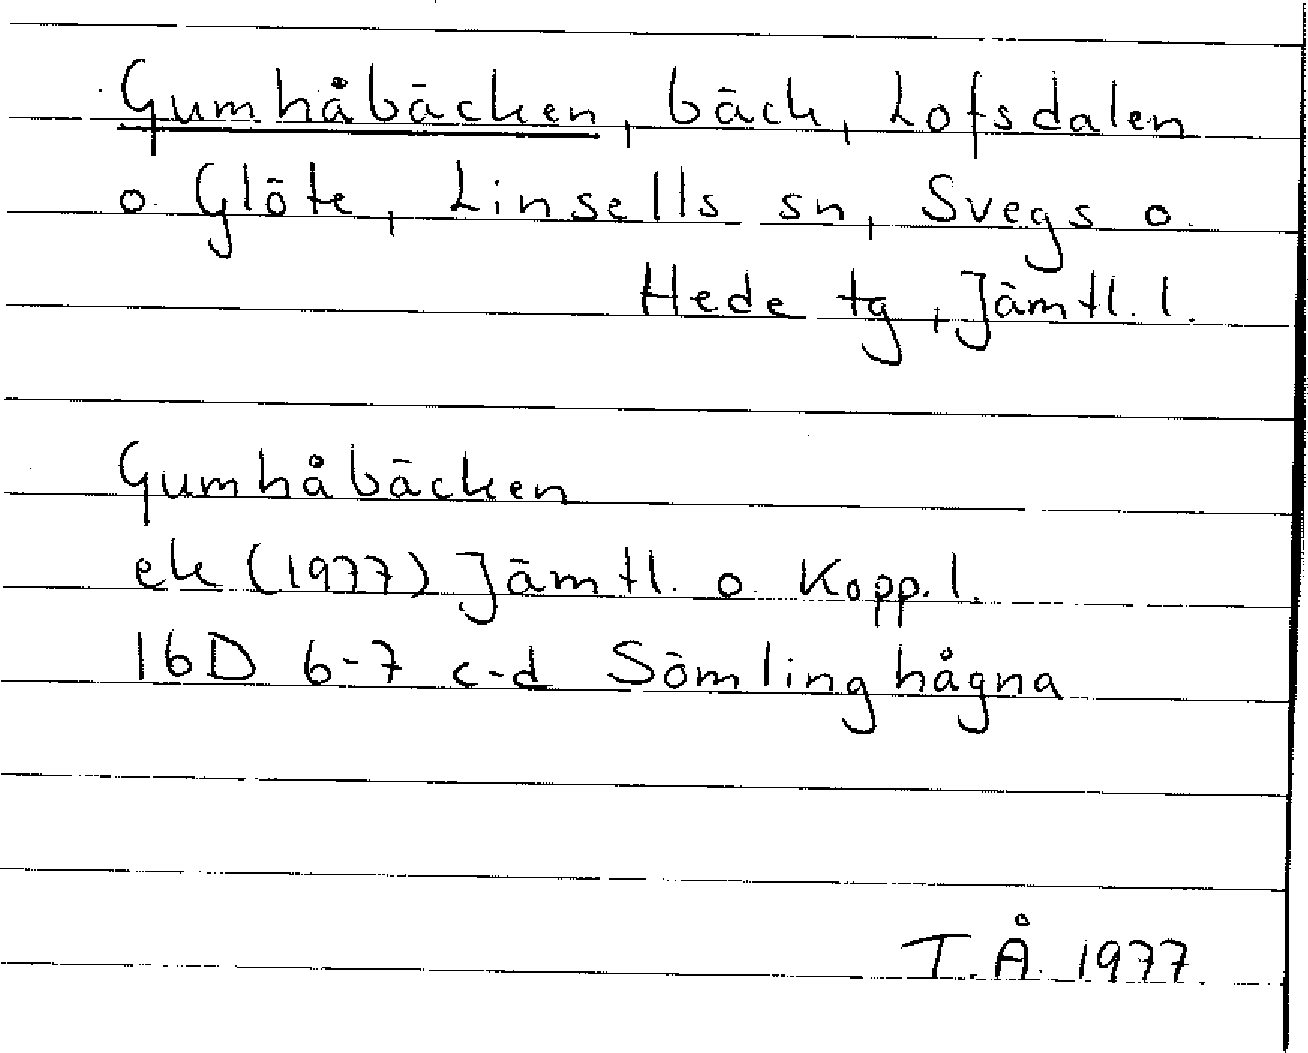 Gumhåbäcken, bäck, Lofsdalen
o. Glöte, Linsells sn, Svegs o.
Hede tg, Jämtl. l.
Gumhåbäcken
ek (1977) Jämtl. o. Kopp. l.
16D 6-7 c-d Sömlinghågna
T.Å. 1977.